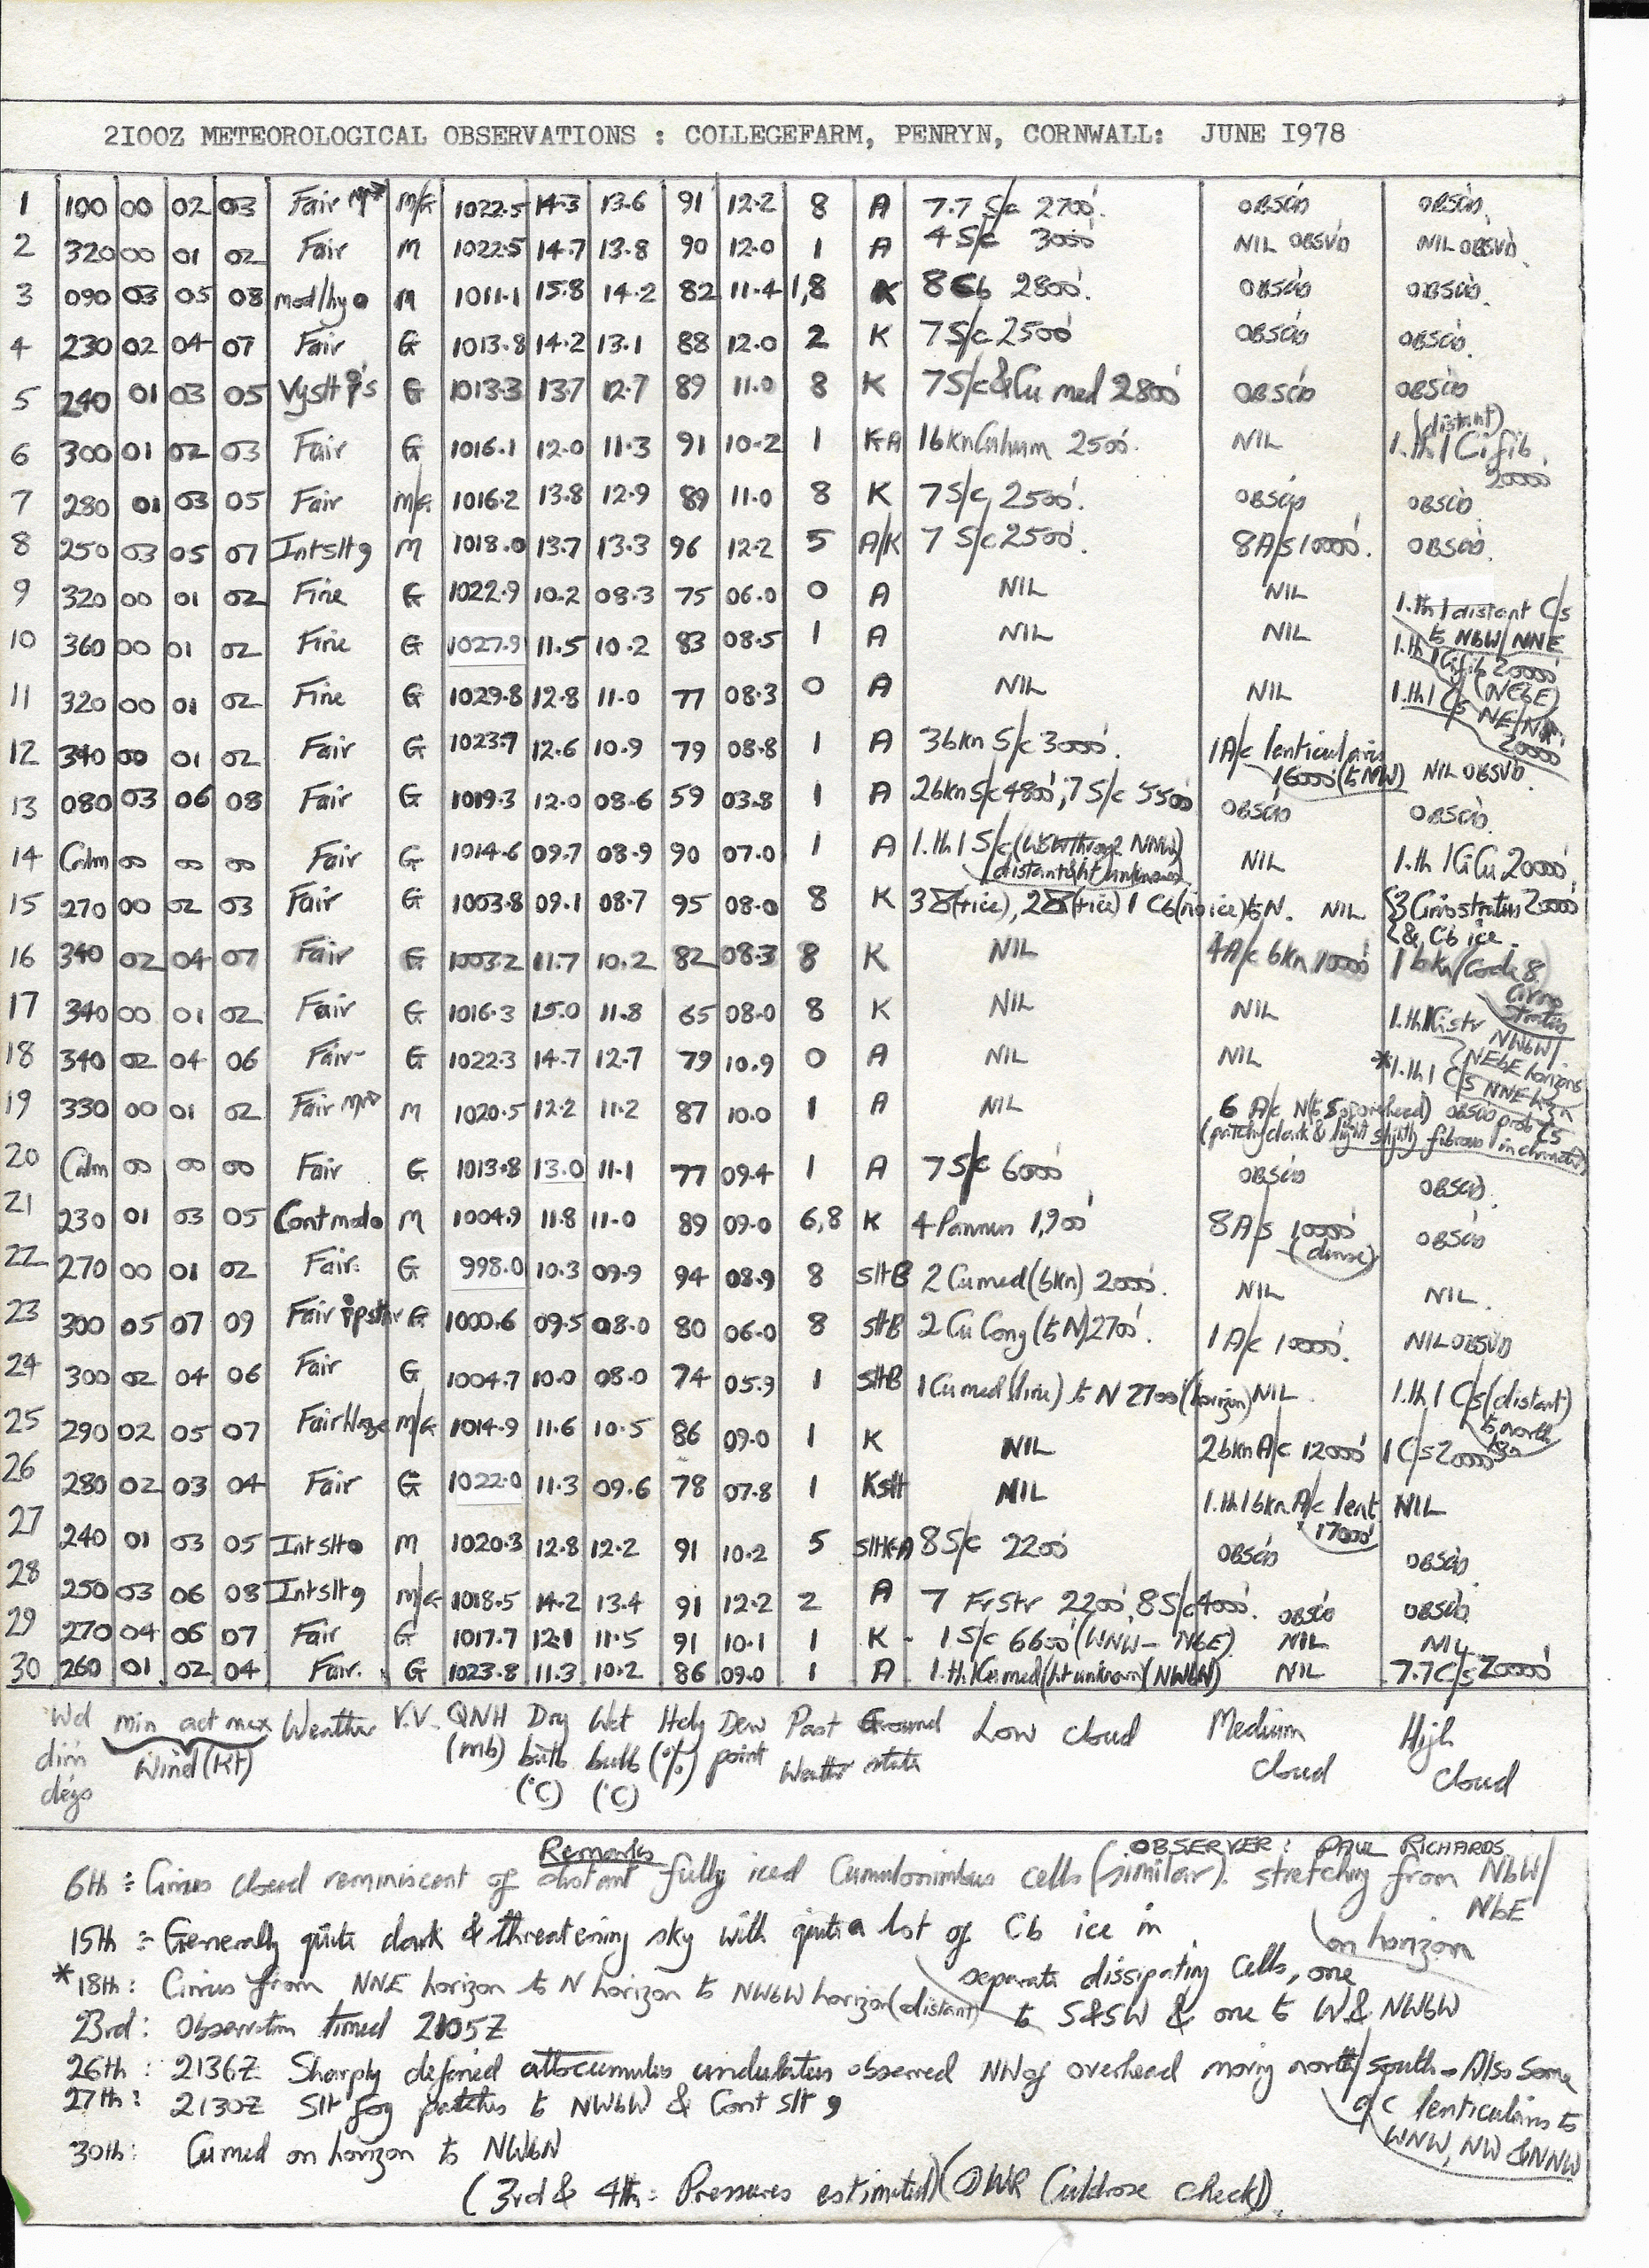 2100Z METEOROLOGICAL OBSERVATIONS : COLLEGEFARM, PENRYN, CORNWALL: JUNE I978
1 100 00 02 03 Fair M/G 1022.5 14.3 13.6 91 12.2 8 A 7.7 S/c 2700'. OBSCD OBSCD.
2 320 00 01 02 Fair M 1022.5 14.7 13.8 90 12.0 1 A 4 S/c 3000' NIL OBSVD NIL OBSVD.
3 090 03 05 08 mod/hy M 1011.1 15.8 14.2 82 11.4 1,8 K 8 Cb 2800'. OBSCD OBSCD.
4 230 02 04 07 Fair G 1013.8 14.2 13.1 88 12.0 2 K 7 S/c 2500' OBSCD OBSCD.
5 240 01 03 05 Vyslt G 1013.3 13.7 12.7 89 11.0 8 K 7 S/c & Cu med 2800' OBSCD OBSCD
6 300 01 02 03 Fair G 1016.1 12.0 11.3 91 10.2 1 K-A 1 bkn Cu hum 2500'. NIL (distant) 1.th 1 Ci fib. 20000'
7 280 01 03 05 Fair M/G 1016.2 13.8 12.9 89 11.0 8 K 7 S/c, 2500'. OBSCD OBSCD
8 250 03 05 07 Int slt 9 M 1018.0 13.7 13.3 96 12.2 5 A/K 7 S/c 2500'. 8 A/s 10000'. OBSCD.
9 320 00 01 02 Fine G 1022.9 10.2 08.3 75 06.0 0 A NIL NIL 1.th 1 distant C/s to NbW/NNE
10 360 00 01 02 Fine G 1027.9 11.5 10.2 83 08.5 1 A NIL NIL 1.th 1 Ci fib 20000' (NEbE)
11 320 00 01 02 Fine G 1029.8 12.8 11.0 77 08.3 0 A NIL NIL 1.th 1 C/s 20000'
12 340 00 01 02 Fair G 1023.7 12.6 10.9 79 08.8 1 A 3 bkn S/c 3000'. 1 A/c lenticularis 16000' (to NW) NIL OBSVD.
13 080 03 06 08 Fair G 1019.3 12.0 08.6 59 03.8 1 A 2 bkn S/c 4800'; 7 S/c 5500' OBSCD OBSCD.
14 Calm 00 00 00 Fair G 1014.6 09.7 08.9 90 07.0 1 A 1.th 1 S/c (WSW through NNW) distant & ht unknown NIL 1.th 1 CiCu 20000'.
15 270 00 02 03 Fair G 1003.8 09.1 08.7 95 08.0 8 K 3 (+ice), 2 (+ice) 1 Cb (no ice) to N. NIL {3 Cirrostratus 20000' & Cb ice.
16 340 02 04 07 Fair G 1003.2 11.7 10.2 82 08.3 8 K NIL 4 A/c bkn 10000' 1 bkn (Code 8) Cirrostratus
17 340 00 01 02 Fair G 1016.3 15.0 11.8 65 08.0 8 K NIL NIL 1.th 1 Cistr NWbW/NEbE horizons
18 340 02 04 06 Fair G 1022.3 14.7 12.7 79 10.9 0 A NIL NIL *1.th 1 C/s NNE hzn
19 330 00 01 02 Fair M 1020.5 12.2 11.2 87 10.0 1 A NIL 6 A/c N (to S overhead) (patchy dark & light slightly fibrous in character) OBSCD prob Cs
20 Calm 00 00 00 Fair G 1013.8 13.0 11.1 77 09.4 1 A 7 S/c 6000' OBSCD OBSCD.
21 230 01 03 05 Cont mod M 1004.9 11.8 11.0 89 09.0 6,8 K 4 Pannus 1,900' 8 A/s 10000' (dense) OBSCD
22 270 00 01 02 Fair. G 998.0 10.3 09.9 94 08.9 8 slt B 2 Cu med (bkn) 2000'. NIL NIL.
23 300 05 07 09 Fair G 1000.6 09.5 08.0 80 06.0 8 slt B 2 Cu Cong (to N) 2700'. 1 A/c 10000'. NIL OBSVD
24 300 02 04 06 Fair G 1004.7 10.0 08.0 74 05.9 1 slt B 1 Cu med (line) to N 2700' (horizon) NIL. 1.th 1 C/s (distant) to north hzn
25 290 02 05 07 Fair Haze M/G 1014.9 11.6 10.5 86 09.0 1 K NIL 2 bkn A/c 12000' 1 C/s 20000'
26 280 02 03 04 Fair G 1022.0 11.3 09.6 78 07.8 1 K slt NIL 1.th 1 bkn A/c lent 17000' NIL
27 240 01 03 05 Int slt M 1020.3 12.8 12.2 91 10.2 5 slt K-A 8 S/c 2200' OBSCD OBSCD.
28 250 03 06 08 Int slt 9 M/G 1018.5 14.2 13.4 91 12.2 2 A 7 Fr Str 2200', 8 S/c 4000'. OBSCD OBSCD.
29 270 04 06 07 Fair G 1017.7 12.1 11.5 91 10.1 1 K - 1 S/c 6600' (WNW - NbE) NIL NIL
30 260 01 02 04 Fair. G 1023.8 11.3 10.2 86 09.0 1 A 1.th 1 Cu med (ht unknown) (NWbN) NIL 7.7 C/s 20000'
Wd dirn degs min act max Wind (Kt) Weather V.V. QNH (mb) Dry bulb (°C) Wet bulb (°C) Hdy (%) Dew point Past Weather Ground state Low cloud Medium cloud High cloud
Remarks OBSERVER: PAUL RICHARDS
6th :- Cirrus cloud reminiscent of distant fully iced Cumulonimbus cells (similar). stretching from NbW/NbE on horizon
15th :- Generally quite dark & threatening sky with quite a lot of Cb ice in separate dissipating cells, one to S & SW & one to W & NWbW
*18th: Cirrus from NNE horizon to N horizon to NWbW horizon (distant)
23rd: Observation timed 2105Z
26th: 2136Z Sharply defined altocumulus undulatus observed NN of overhead moving north/south - Also some a/c lenticularis to WNW, NW & NNW
27th: 2130Z Slt fog patches to NWbW & Cont slt 9
30th: Cu med on horizon to NWbN
(3rd & 4th: Pressures estimated) (DWR Culdrose check)